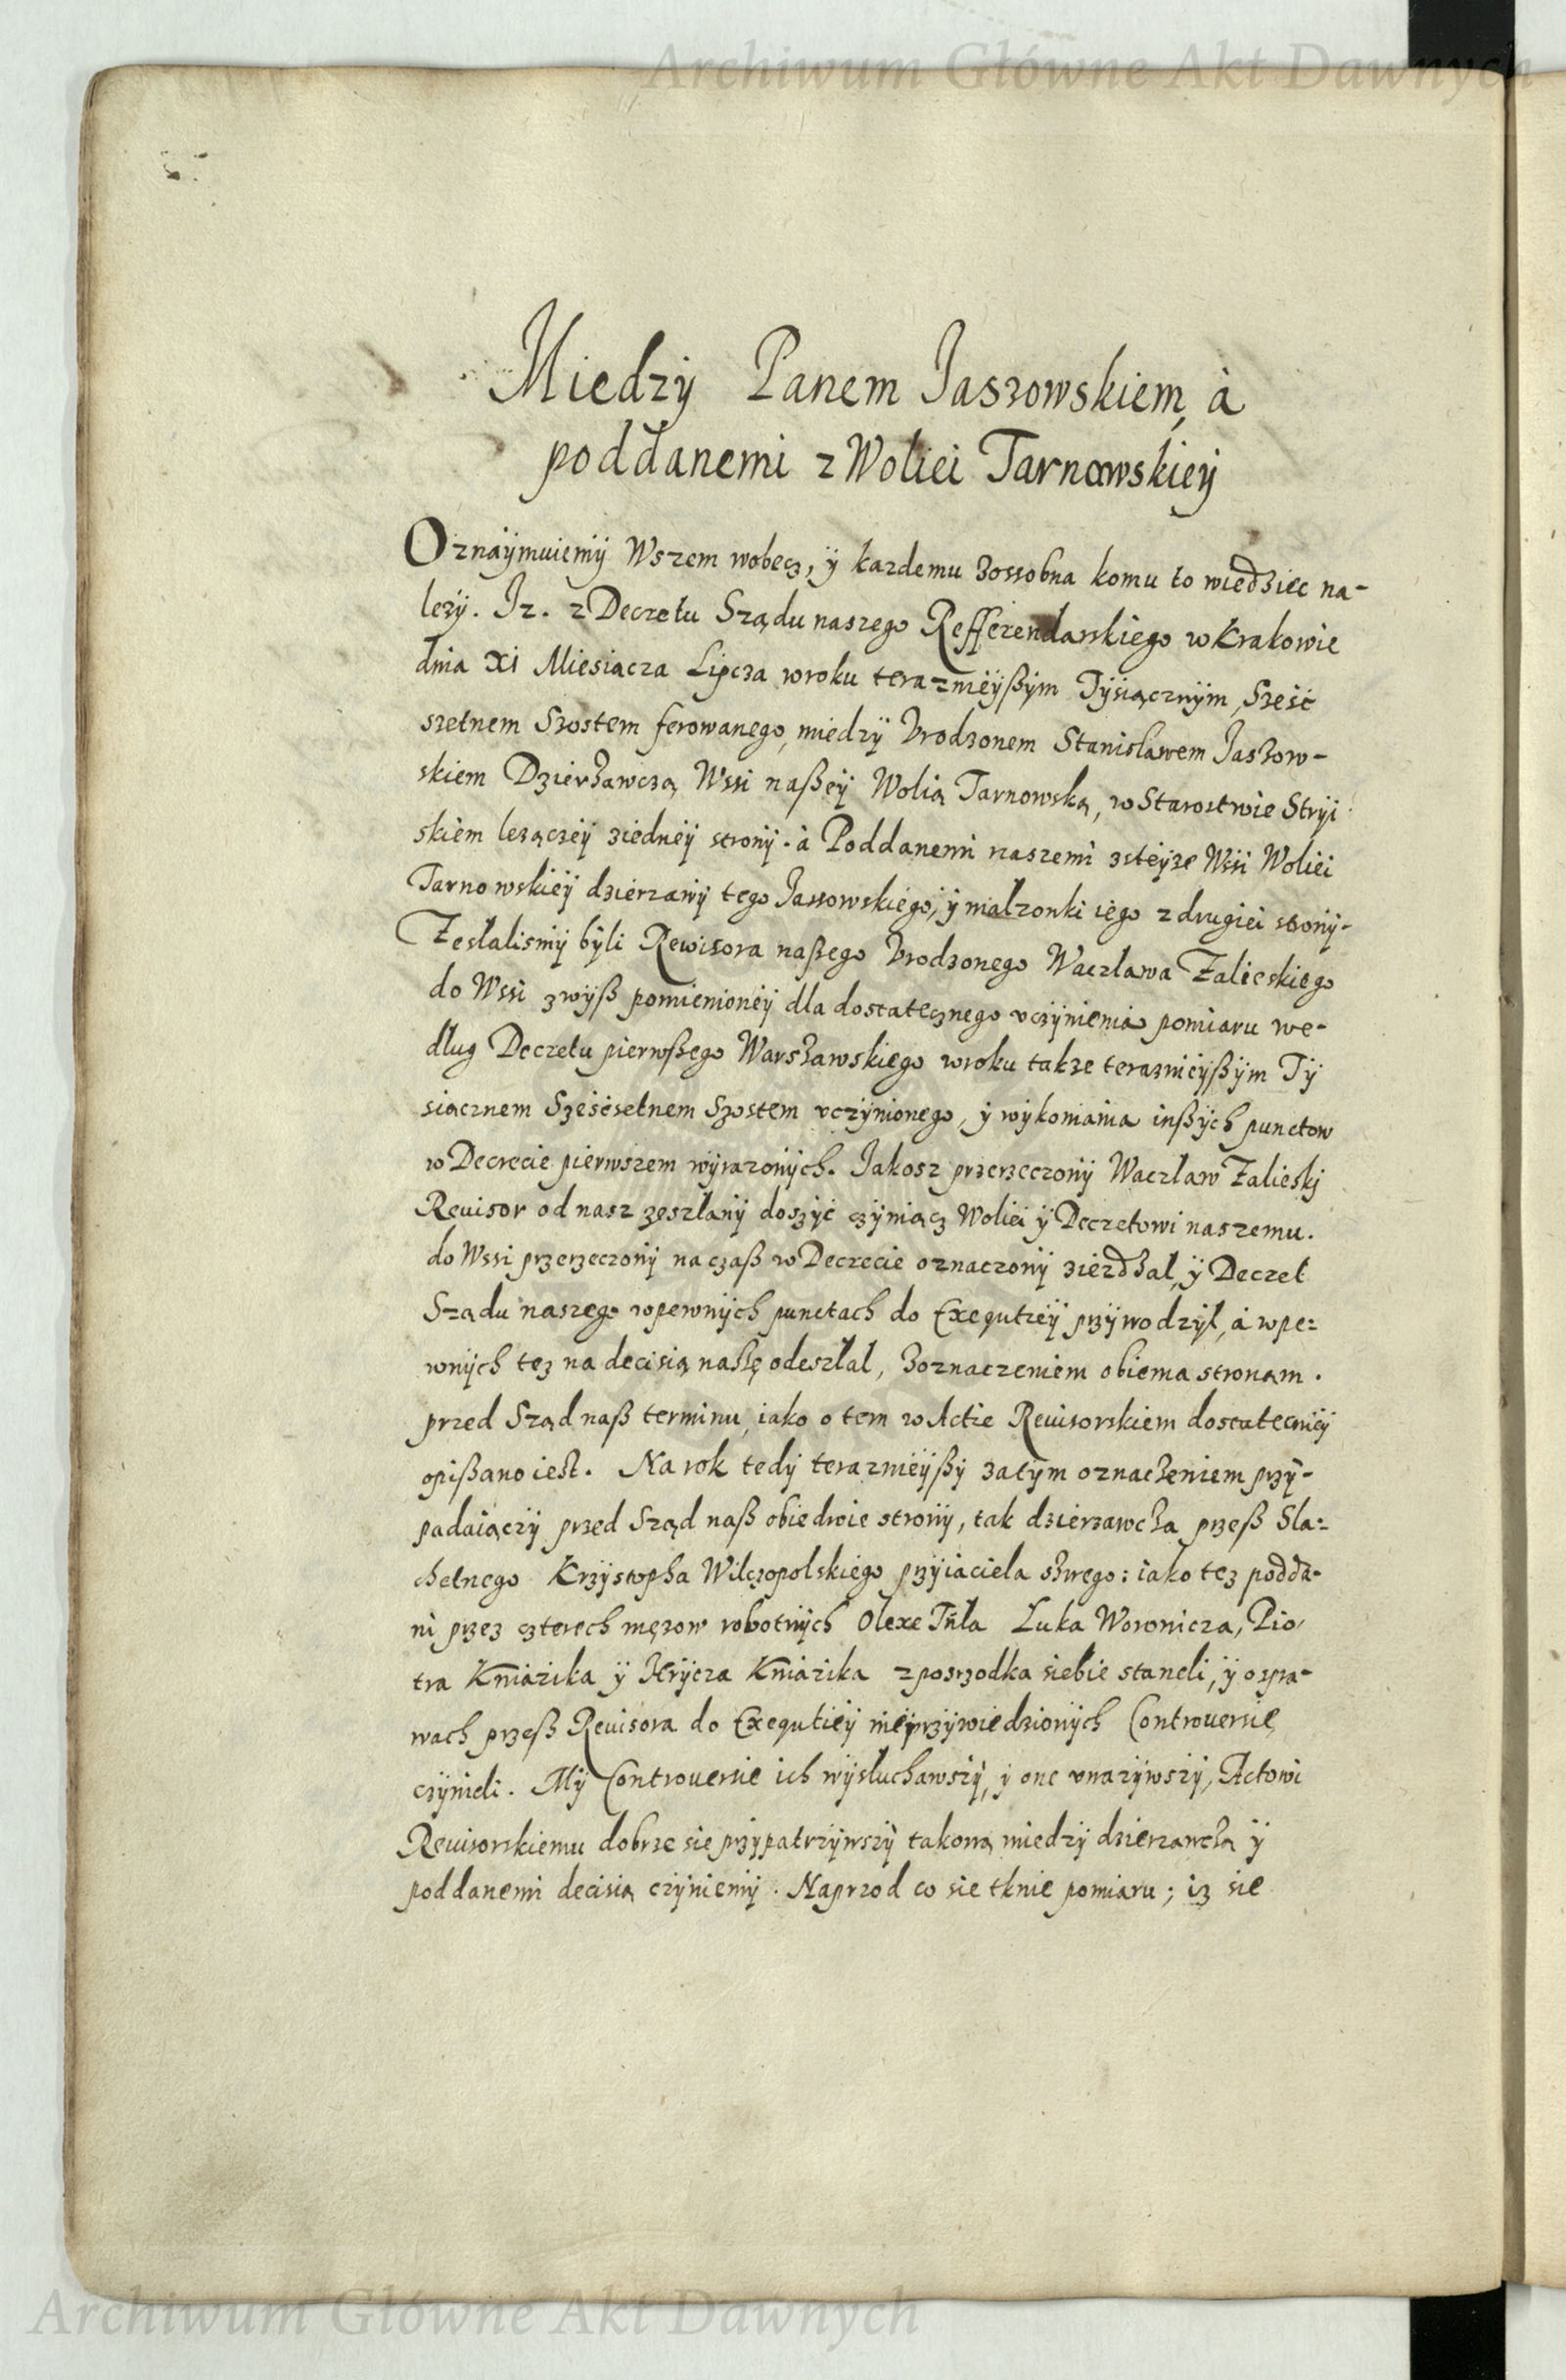 Archiwum Główne Akt Dawnych
Miedzÿ Panem Jaszowskiem, à
poddanemi z Woliei Tarnawskieÿ
Oznaÿmuiemÿ Wszem wobecz, ÿ kazdemu zossobna komu to wiedziec na-
lezÿ. Jz. z Decretu Sządu naszego Refferendarskiego w Krakowie
dnia XI Miesiącza Lipcza wroku teraznieÿßÿm Tÿsiącznÿm, Sześć
szetnem Szostem ferowanego, miedzÿ Vrodzonem Stanisławem Jaszow-
skiem Dzierzawczą Wssi naßeÿ Wolią Tarnowską, w Starostwie Stryi
skiem lezączeÿ ziedneÿ stronÿ. à Poddanemi naszemi zsteÿze Wssi Woliei
Tarnowskieÿ dzierzawÿ tego Jassowskiego, ÿ małzonki iego z drugiei stronÿ-
Zesłalismÿ bÿli Rewisora naßego Vrodzonego Waczława Zalieskiego
do Wssi zwÿß pomienioneÿ dla dostatecznego vczÿnienia pomiaru we-
dług Decretu pierwßego Warszawskiego wroku takze teraznieÿßÿm Tÿ
siącznem Sześćsetnem Szostem vczÿnionego, ÿ wÿkonania inßÿch punctow
w Decrecie pierwszem wÿrazonÿch. Jakosz przerzeczonÿ Waczław Zalieski
Reuisor od nasz zeszłanÿ doszÿć czÿniącz Woliei ÿ Decretowi naszemu.
do Wssi przerzeczonÿ na czaß w Decrecie oznaczonÿ ziezdzał, ÿ Decret
Sządu naszego wpewnÿch punctach do Exequtieÿ przÿwodzÿł, à wpe=
wnÿch tez na decisią naszę odeszłał, zoznaczeniem obiema stronam.
przed Sząd naß terminu, iako o tem w Actie Reuisorskiem dostatecznieÿ
opißano iest. Na rok tedÿ teraznieÿßÿ zatÿm oznaczeniem przÿ-
padaiączÿ przed Sząd naß obiedwie stronÿ, tak dzierzawcza przeß Sla=
chetnego Krzÿstopha Wilczopolskiego przÿiaciela szwego: iako tez podda-
ni przez czterech męzow robotnÿch Olexe Luka Woronicza, Pio,
tra Kniazika ÿ Hrÿcza Kniazika zposrzodka siebie staneli, ÿ ospra-
wach przeß Reuisora do Exequtieÿ nieprzÿwiedzionÿch Controuersie
czÿnieli. Mÿ Controuersie ich wÿsłuchawszÿ, ÿ one vwazÿwszÿ, Actowi
Reuisorskiemu dobrze sie przÿpatrzÿwszÿ takową miedzÿ dzierzawczą ÿ
poddanemi decisią czÿniemÿ. Naprzod co sie tknie pomiaru; iz sie
Archiwum Główne Akt Dawnych